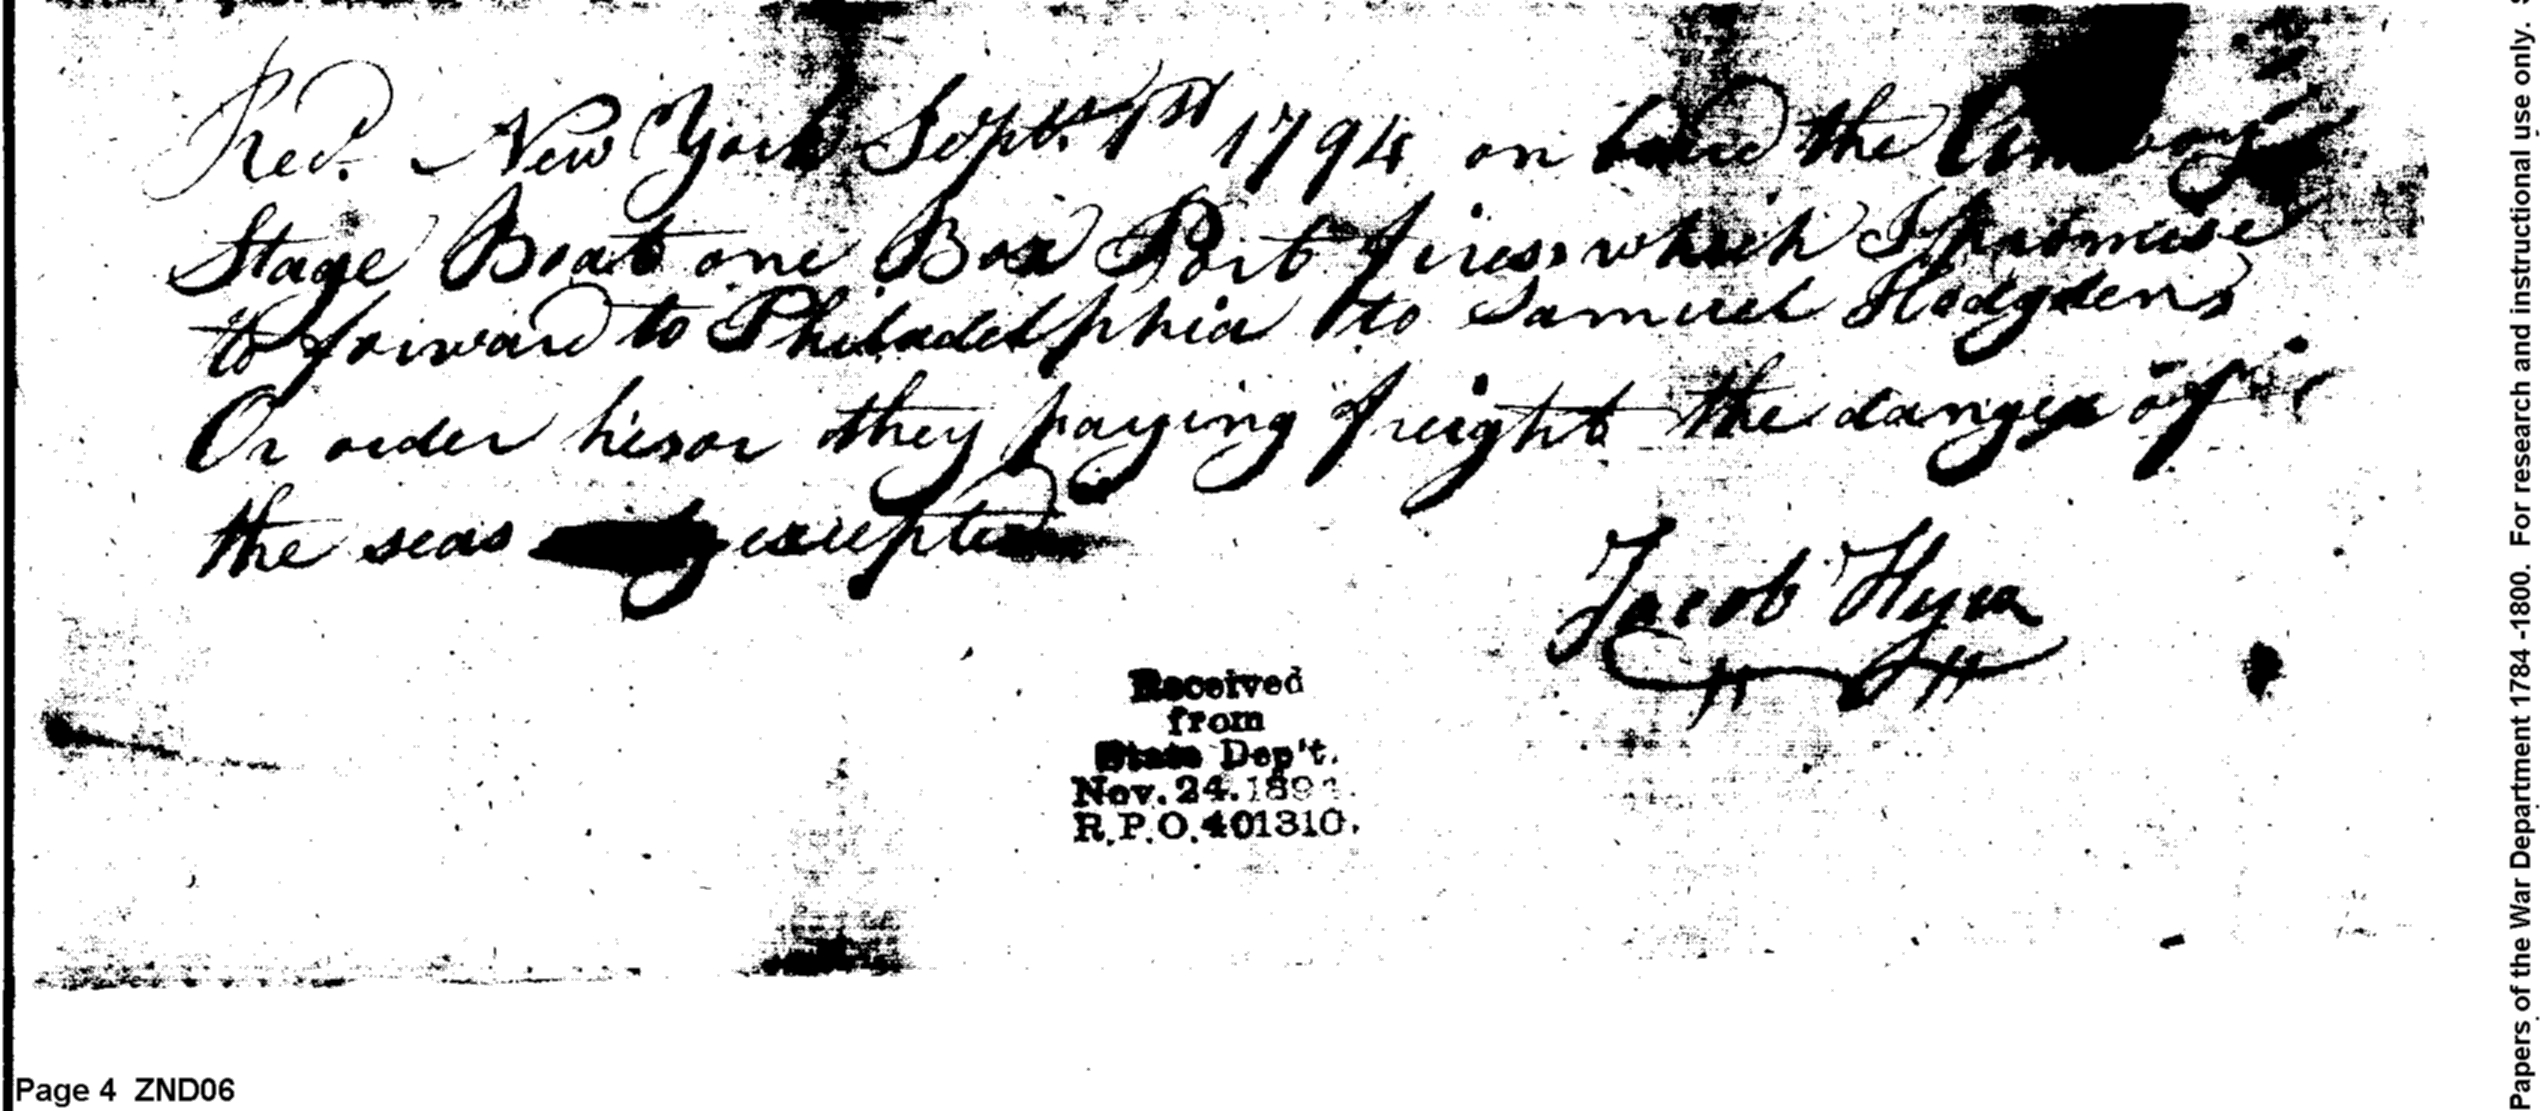 Recd. New York Septr. 1st 1794 on board the Amboy
Stage Boat one Box Port fires, which I promise
to forward to Philadelphia to Samuel Hodgdens
Or order hisor they paying freight the danger of
the seas excepted
Jacob Hyer
Received
from
State Dep't.
Nov. 24. 189
R.P.O. 401310.
Page 4 ZND06
Papers of the War Department 1784 -1800. For research and instructional use only.